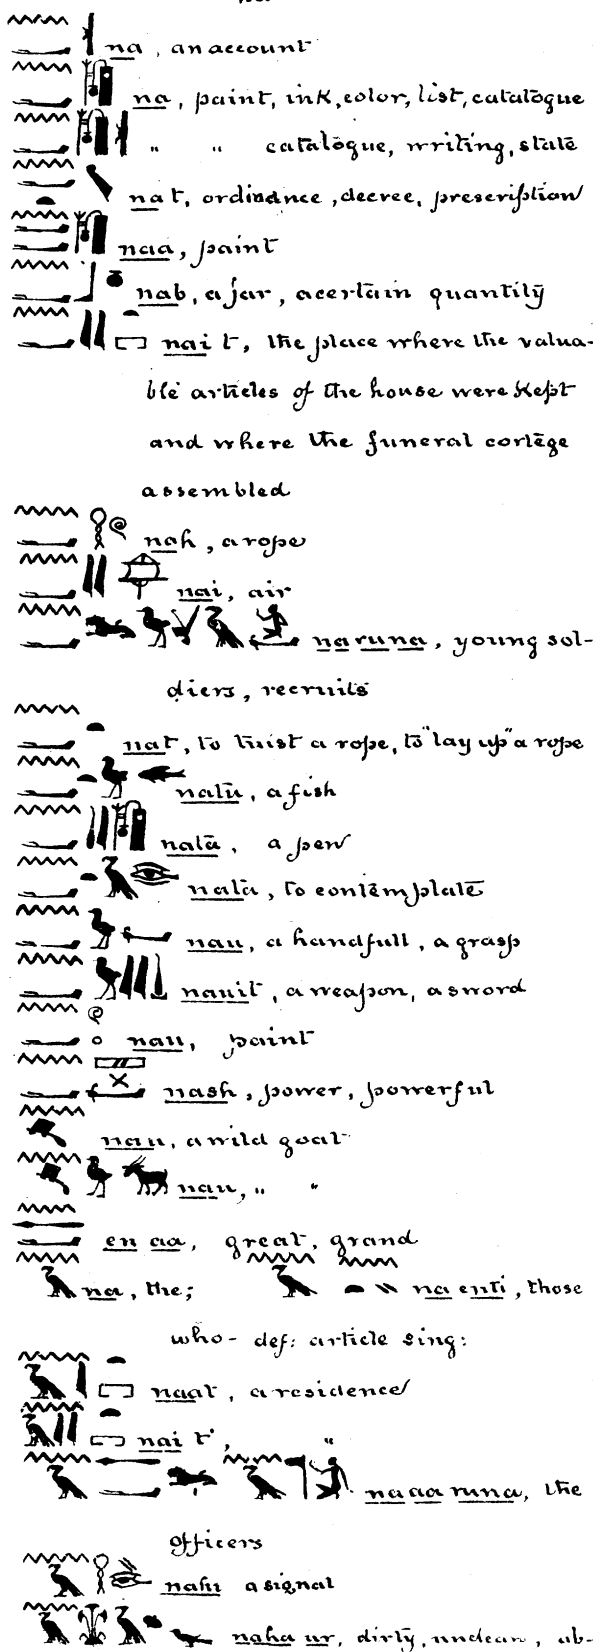 na, an account
na, paint, ink, color, list, catalogue
" " catalogue, writing, state
nat, ordinance, decree, prescription
naa, paint
nab, a jar, a certain quantity
nait, the place where the valua-
ble articles of the house were kept
and where the funeral cortege
assembled
nah, a rope
nai, air
naruna, young sol-
diers, recruits
nat, to twist a rope, to "lay up" a rope
natu, a fish
nata, a pen
nata, to contemplate
nau, a handfull, a grasp
nauit, a weapon, a sword
nau, paint
nash, power, powerful
nau, a wild goat
nau, " "
en aa, great, grand
na, the; na enti, those
who - def: article sing:
naat, a residence
nait, "
na aa runa, the
officers
nahu a signal
naha ur, dirty, unclean, ab-